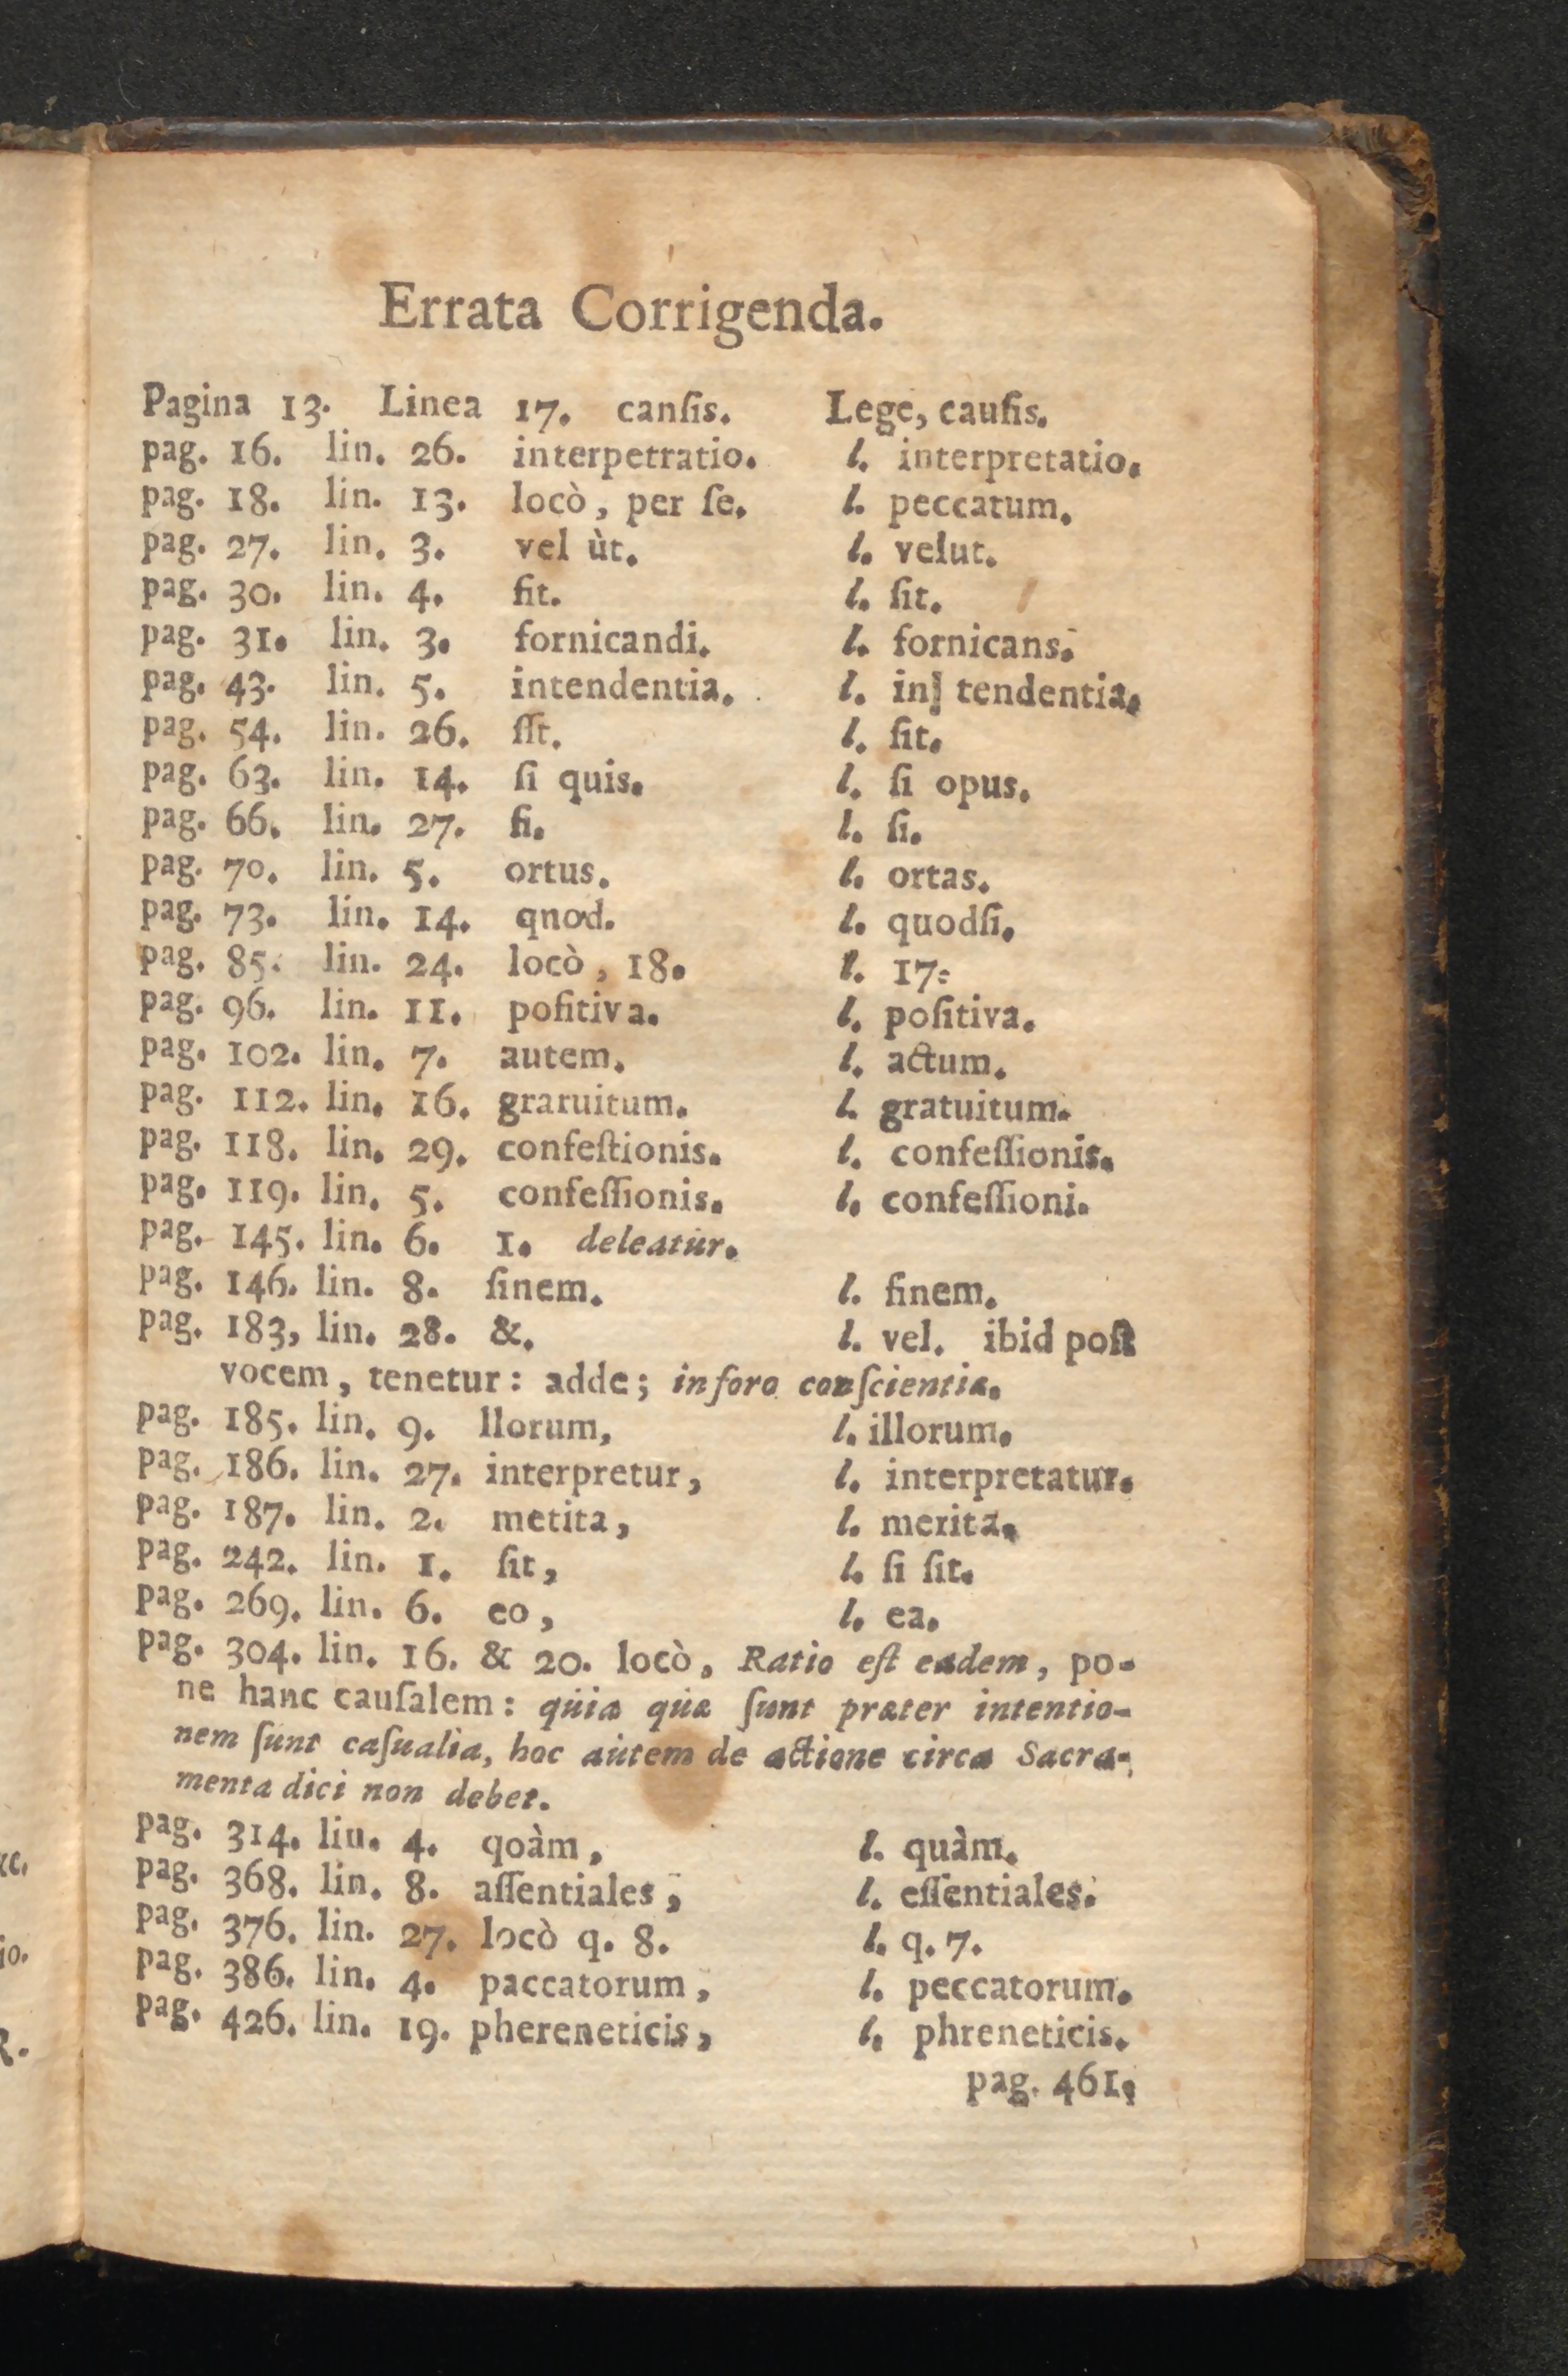 Errata Corrigenda.
Pagina 13. Linea 17. canſis. Lege, cauſis.
pag. 16. lin. 26. interpetratio. l. interpretatio.
pag. 18. lin. 13. locò, per ſe. l. peccatum.
pag. 27. lin. 3. vel ùt. l. velut.
pag. 30. lin. 4. fit. l. ſit.
pag. 31. lin. 3. fornicandi. l. fornicans.
pag. 43. lin. 5. intendentia. l. in] tendentia.
pag. 54. lin. 26. ſſt. l. ſit.
pag. 63. lin. 14. ſi quis. l. ſi opus.
pag. 66. lin. 27. fi. l. ſi.
pag. 70. lin. 5. ortus. l. ortas.
pag. 73. lin. 14. qnod. l. quodſi.
pag. 85. lin. 24. locò, 18. l. 17.
pag. 96. lin. 11. pofitiva. l. poſitiva.
pag. 102. lin. 7. autem. l. actum.
pag. 112. lin. 16. graruitum. l. gratuitum.
pag. 118. lin. 29. confeſtionis. l. confeſſionis.
pag. 119. lin. 5. confeſſionis. l. confeſſioni.
pag. 145. lin. 6. 1. deleatur.
pag. 146. lin. 8. ſinem. l. finem.
pag. 183, lin. 28. &. l. vel. ibid poſt
vocem, tenetur: adde; in foro conſcientiæ.
pag. 185. lin. 9. llorum, l. illorum.
pag. 186. lin. 27. interpretur, l. interpretatur.
pag. 187. lin. 2. metita, l. merita.
pag. 242. lin. 1. ſit, l. ſi ſit.
pag. 269. lin. 6. eo, l. ea.
pag. 304. lin. 16. & 20. locò, Ratio eſt eadem, po-
ne hanc cauſalem: quia quæ ſunt præter intentio-
nem ſunt caſualia, hoc autem de actione circa Sacra-
menta dici non debet.
pag. 314. liu. 4. qoàm, l. quàm.
pag. 368. lin. 8. aſſentiales, l. eſſentiales.
pag. 376. lin. 27. locò q. 8. l. q. 7.
pag. 386. lin. 4. paccatorum, l. peccatorum.
pag. 426. lin. 19. phereneticis, l. phreneticis.
pag. 461.